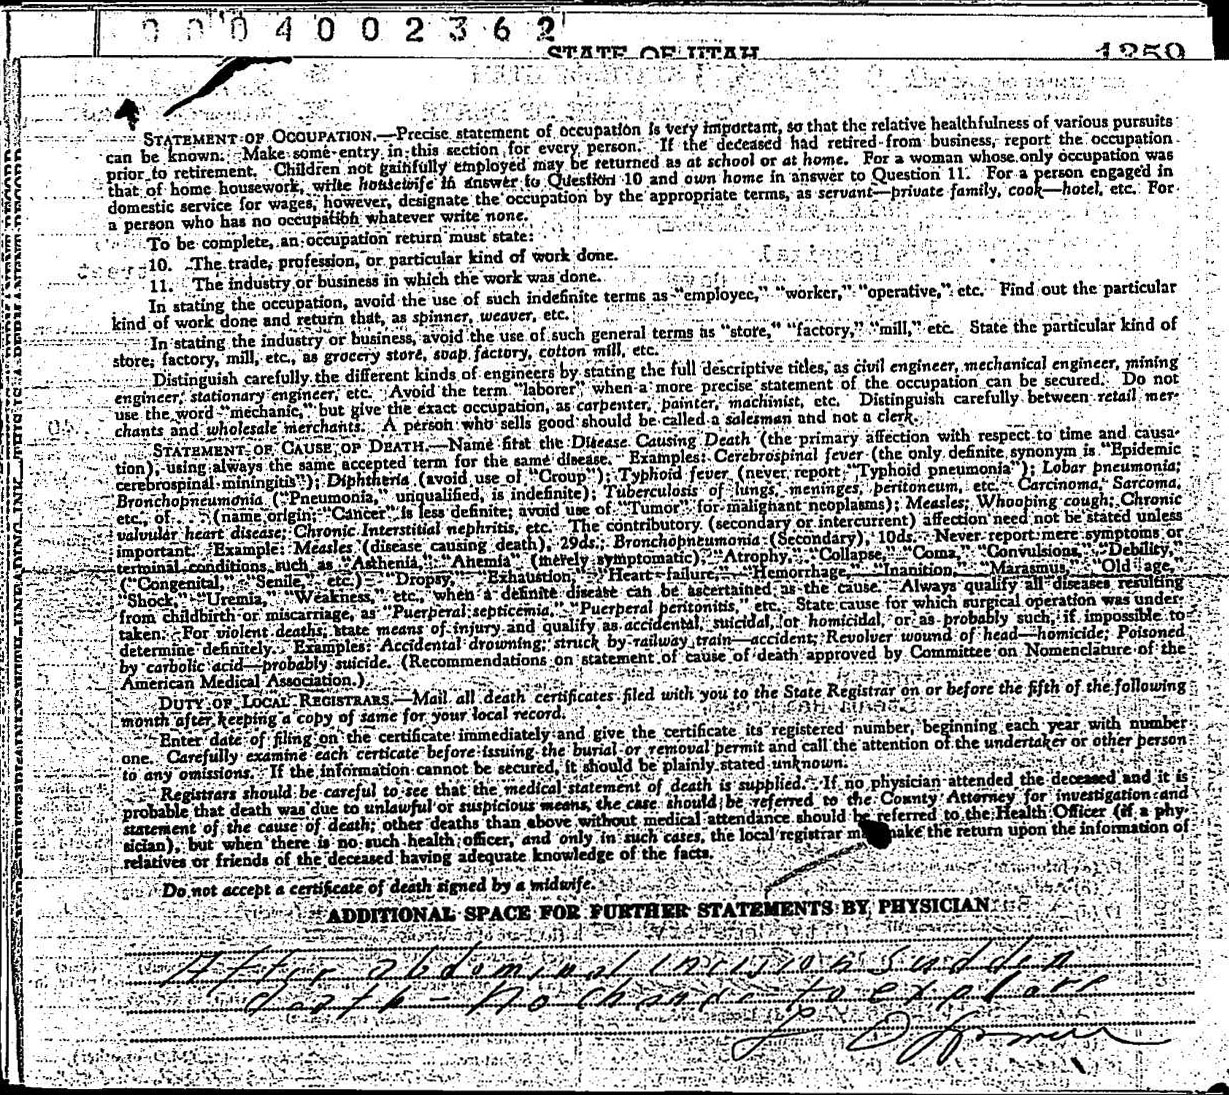 0 0 0 4 0 0 2 3 6 2
STATE OF UTAH 1259
STATEMENT OF OCCUPATION.—Precise statement of occupation is very important, so that the relative healthfulness of various pursuits
can be known. Make some entry in this section for every person. If the deceased had retired from business, report the occupation
prior to retirement. Children not gainfully employed may be returned as at school or at home. For a woman whose only occupation was
that of home housework, write housewife in answer to Question 10 and own home in answer to Question 11. For a person engaged in
domestic service for wages, however, designate the occupation by the appropriate terms, as servant—private family, cook—hotel, etc. For
a person who has no occupation whatever write none.
To be complete, an occupation return must state:
10. The trade, profession, or particular kind of work done.
11. The industry or business in which the work was done.
In stating the occupation, avoid the use of such indefinite terms as "employee," "worker," "operative," etc. Find out the particular
kind of work done and return that, as spinner, weaver, etc.
In stating the industry or business, avoid the use of such general terms as "store," "factory," "mill," etc. State the particular kind of
store, factory, mill, etc., as grocery store, soap factory, cotton mill, etc.
Distinguish carefully the different kinds of engineers by stating the full descriptive titles, as civil engineer, mechanical engineer, mining
engineer, stationary engineer, etc. Avoid the term "laborer" when a more precise statement of the occupation can be secured. Do not
use the word "mechanic," but give the exact occupation, as carpenter, painter, machinist, etc. Distinguish carefully between retail mer-
chants and wholesale merchants. A person who sells good should be called a salesman and not a clerk.
STATEMENT OF CAUSE OF DEATH.—Name first the Disease Causing Death (the primary affection with respect to time and causa-
tion), using always the same accepted term for the same disease. Examples: Cerebrospinal fever (the only definite synonym is "Epidemic
cerebrospinal miningitis"); Diphtheria (avoid use of "Croup"); Typhoid fever (never report "Typhoid pneumonia"); Lobar pneumonia;
Bronchopneumonia ("Pneumonia," unqualified, is indefinite); Tuberculosis of lungs, meninges, peritoneum, etc. Carcinoma, Sarcoma,
etc., of (name origin: "Cancer" is less definite; avoid use of "Tumor" for malignant neoplasms); Measles; Whooping cough; Chronic
valvular heart disease; Chronic Interstitial nephritis, etc. The contributory (secondary or intercurrent) affection need not be stated unless
important. Example: Measles (disease causing death), 29ds.; Bronchopneumonia (Secondary), 10ds. Never report mere symptoms or
terminal conditions, such as "Asthenia," "Anemia" (merely symptomatic), "Atrophy," "Collapse," "Coma," "Convulsions," "Debility,"
("Congenital," "Senile," etc.) "Dropsy," "Exhaustion," "Heart failure," "Hemorrhage," "Inanition," "Marasmus," "Old age,"
"Shock," "Uremia," "Weakness," etc., when a definite disease can be ascertained as the cause. Always qualify all diseases resulting
from childbirth or miscarriage, as "Puerperal septicemia," "Puerperal peritonitis," etc. State cause for which surgical operation was under-
taken. For violent deaths, state means of injury and qualify as accidental, suicidal, or homicidal, or as probably such, if impossible to
determine definitely. Examples: Accidental drowning; struck by railway train—accident; Revolver wound of head—homicide; Poisoned
by carbolic acid—probably suicide. (Recommendations on statement of cause of death approved by Committee on Nomenclature of the
American Medical Association.)
DUTY OF LOCAL REGISTRARS.—Mail all death certificates filed with you to the State Registrar on or before the fifth of the following
month after keeping a copy of same for your local record.
Enter date of filing on the certificate immediately and give the certificate its registered number, beginning each year with number
one. Carefully examine each certicate before issuing the burial or removal permit and call the attention of the undertaker or other person
to any omissions. If the information cannot be secured, it should be plainly stated unknown.
Registrars should be careful to see that the medical statement of death is supplied. If no physician attended the deceased and it is
probable that death was due to unlawful or suspicious means, the case should be referred to the County Attorney for investigation and
statement of the cause of death; other deaths than above without medical attendance should be referred to the Health Officer (if a phy-
sician), but when there is no such health officer, and only in such cases, the local registrar make the return upon the information of
relatives or friends of the deceased having adequate knowledge of the facts.
Do not accept a certificate of death signed by a midwife.
ADDITIONAL SPACE FOR FURTHER STATEMENTS BY PHYSICIAN
After abdominal incision sudden
death - No chance to explore